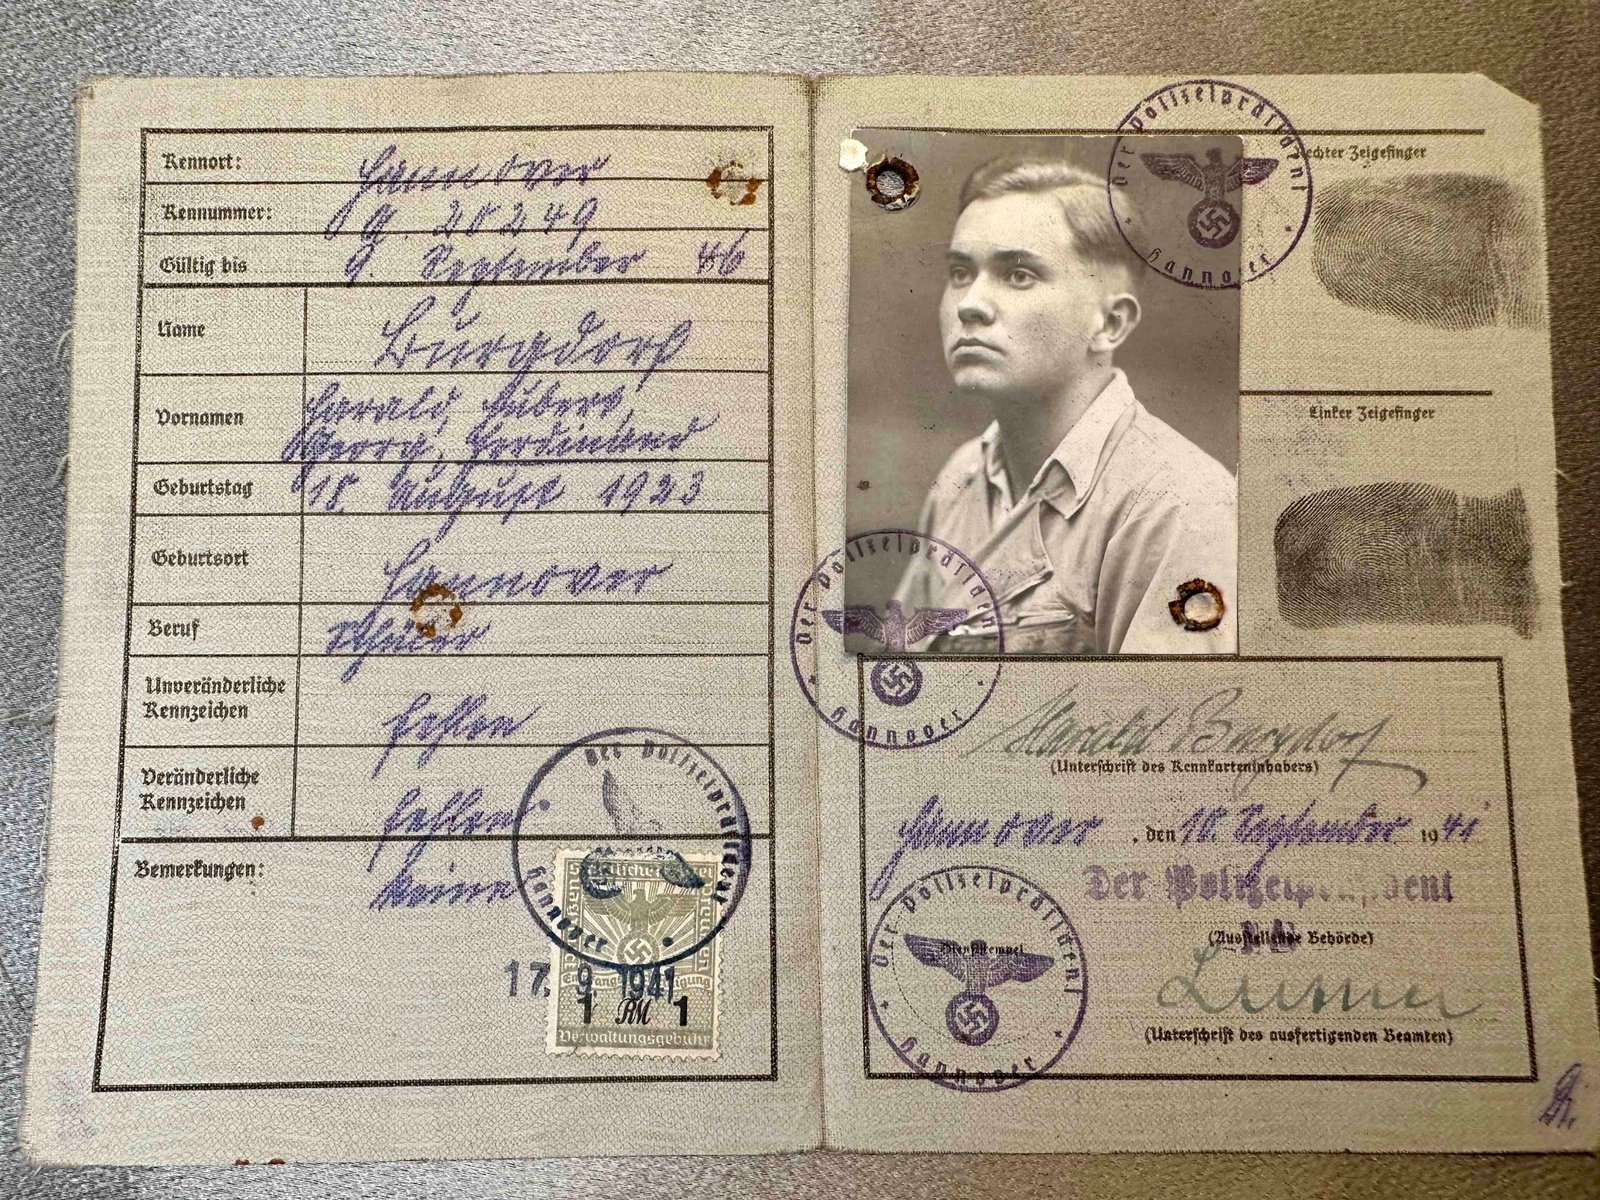 Kennort: Hannover
Kennummer: G. 20249
Gültig bis 9. September 46
Name Burgdorf
Vornamen Harald, Hubert,
Georg, Ferdinand
Geburtstag 18. August 1923
Geburtsort Hannover
Beruf Schüler
Unveränderliche
Kennzeichen fehlen
Veränderliche
Kennzeichen fehlen
Bemerkungen: Keine
Der Polizeipräsident
Hannover
17. 9. 1941
1 RM 1
Verwaltungsgebühr
Der Polizeipräsident
Hannover
Rechter Zeigefinger
Linker Zeigefinger
Der Polizeipräsident
Hannover
Harald Burgdorf
(Unterschrift des Kennkarteninhabers)
Hannover, den 18. September 1941
Der Polizeipräsident
(Ausstellende Behörde)
Der Polizeipräsident
Dienststempel
Hannover
(Unterschrift des ausfertigenden Beamten)